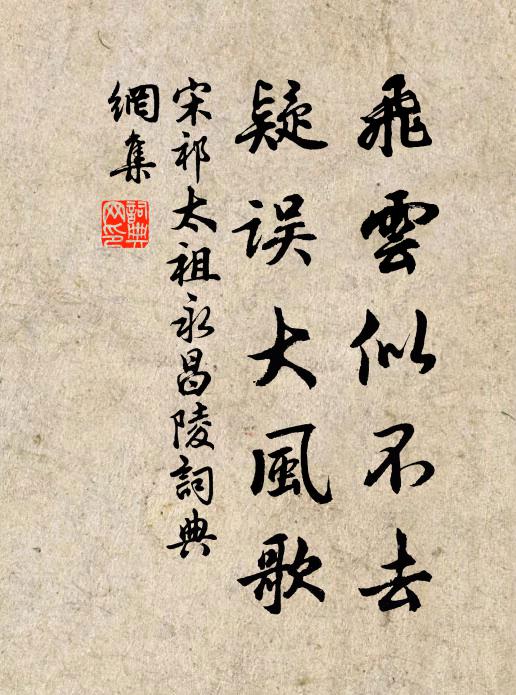 飛雲似不去
疑误大風歌
宋祁太祖永昌陵詞典
網集
詞典
网印